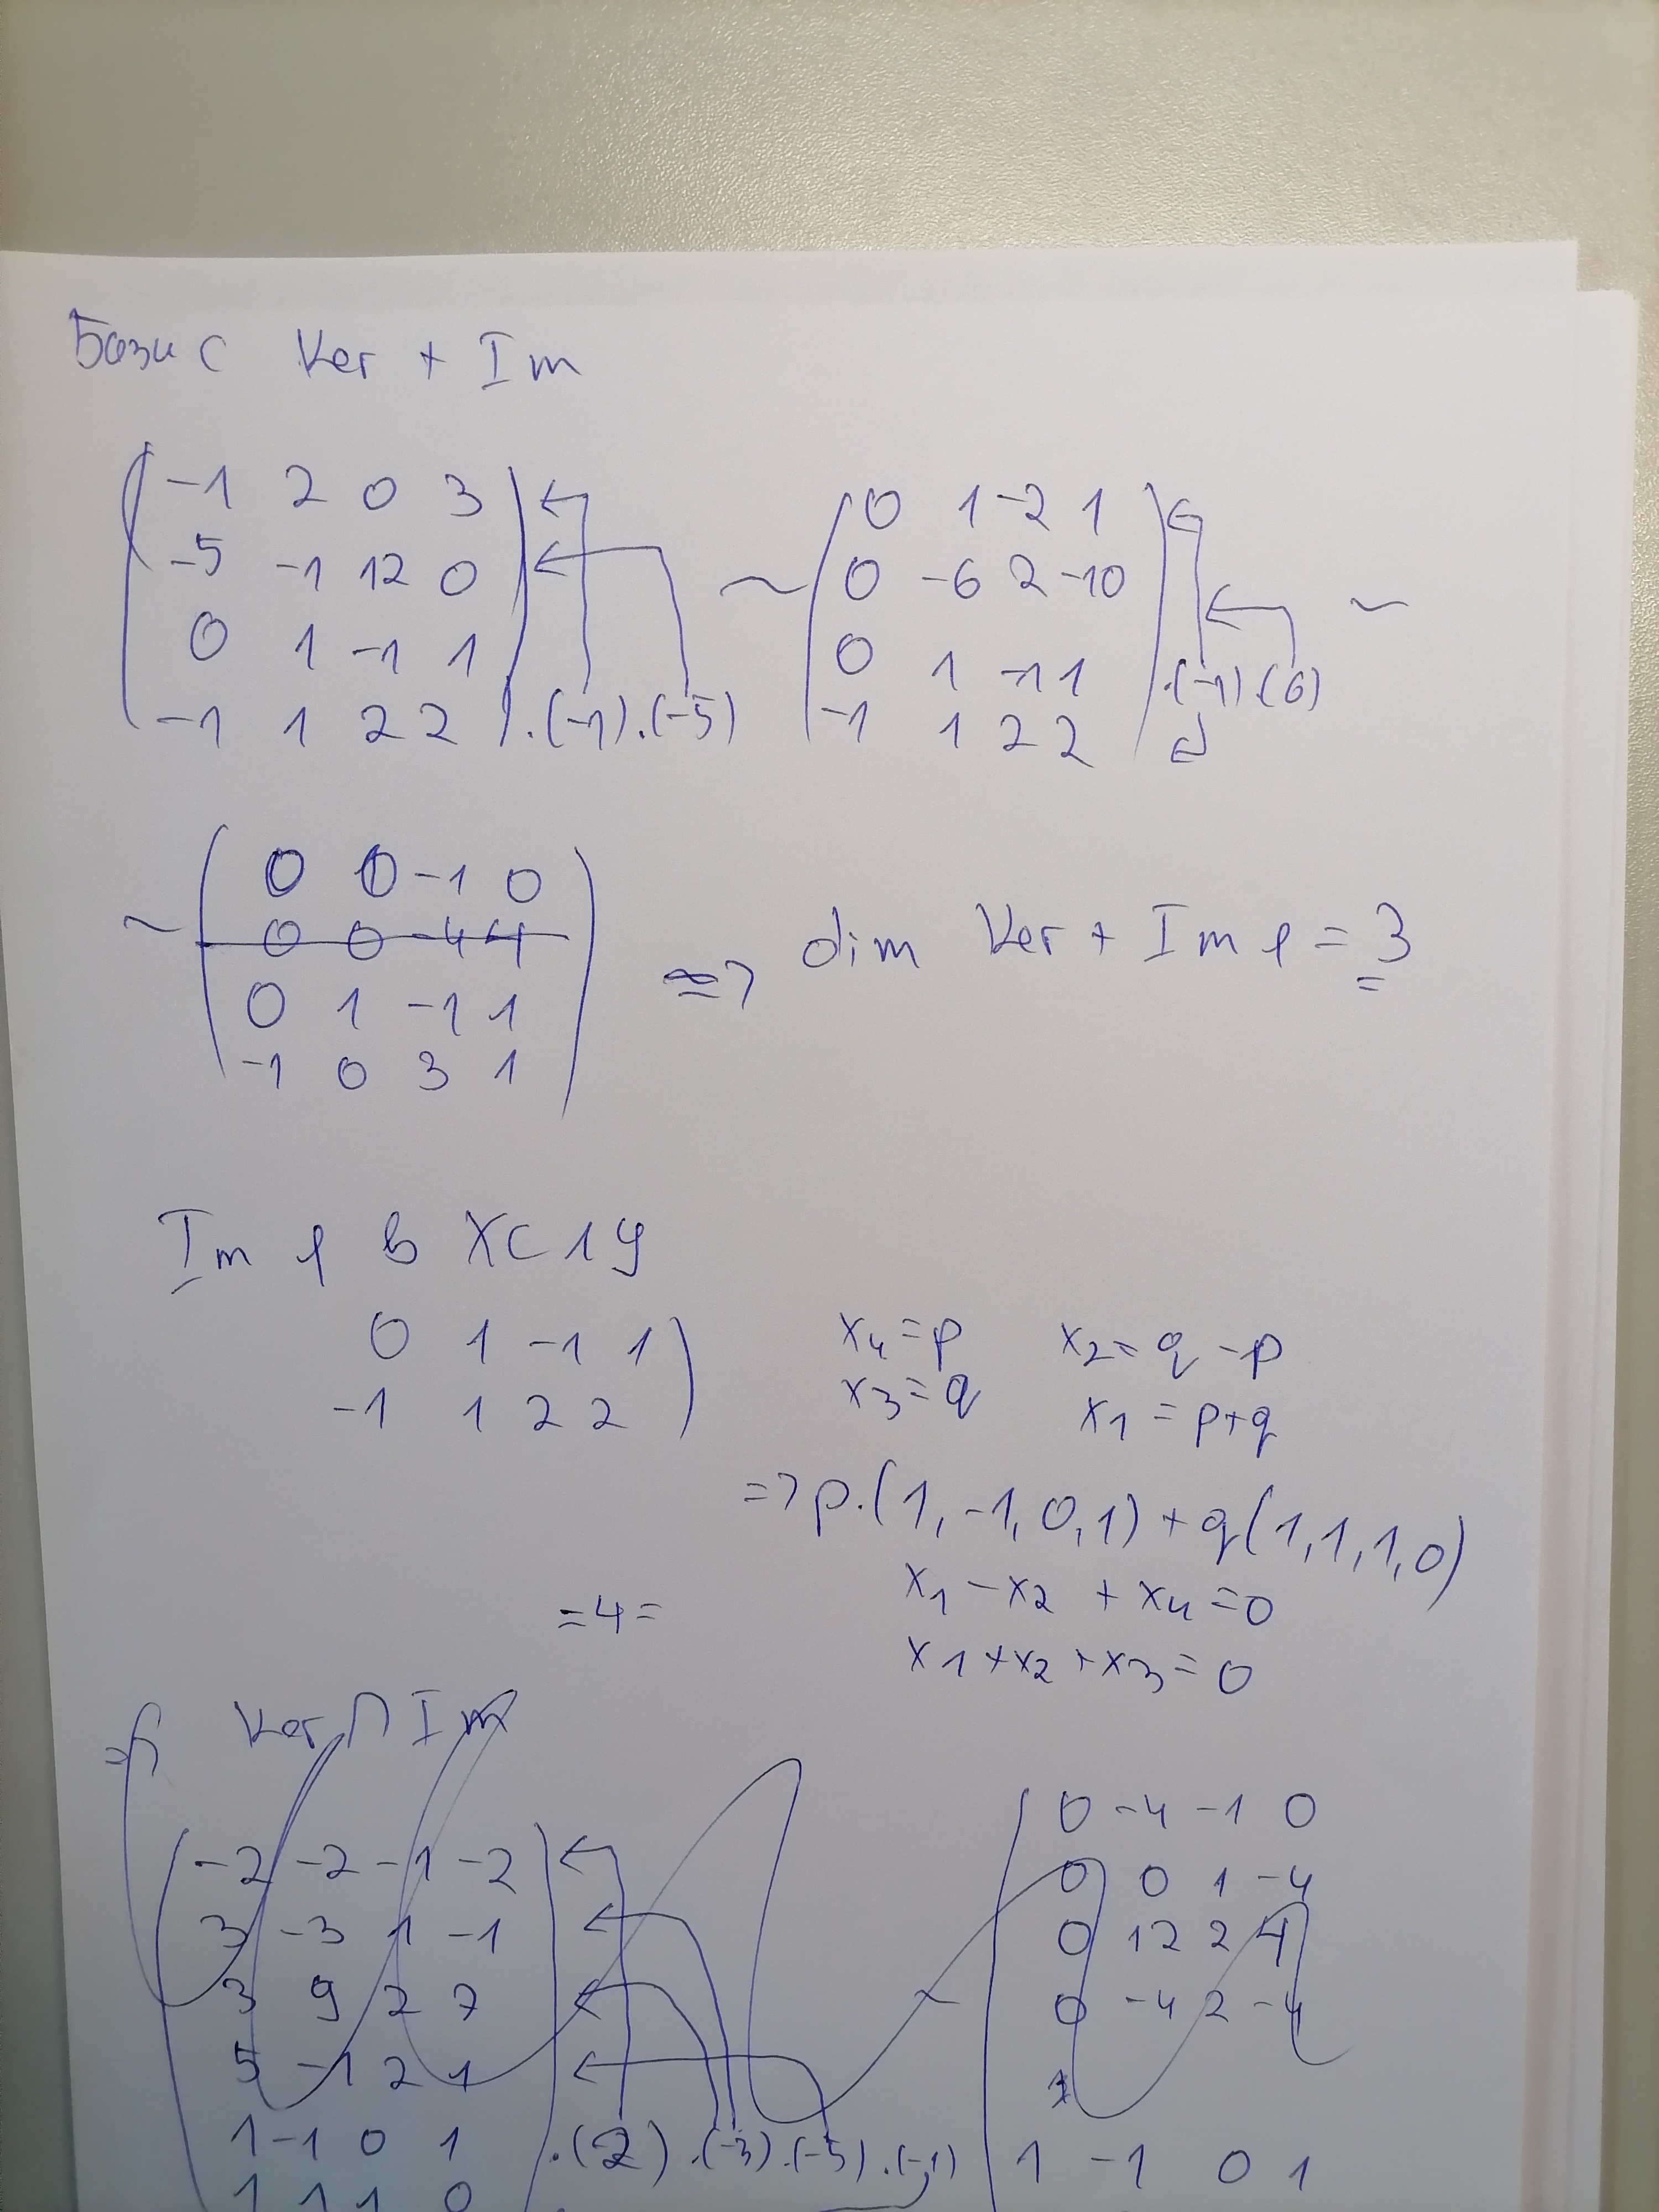 Базис Ker + Im
-1 2 0 3
-5 -1 12 0
0 1 -1 1
-1 1 2 2 .(-1).(-5)
~
0 1 -2 1
0 -6 2 -10
0 1 -1 1 .(-1).(6)
-1 1 2 2
~
~
0 0 -1 0
0 0 -4 -4
0 1 -1 1
-1 0 3 1
=> dim Ker + Im φ = 3
Im φ в ХСЛУ
0 1 -1 1
-1 1 2 2
x4 = p x2 = q - p
x3 = q x1 = p+q
=> p.(1, -1, 0, 1) + q(1, 1, 1, 0)
=4= x1 - x2 + x4 = 0
x1 + x2 + x3 = 0
Ker ∩ Im
-2 -2 -1 -2
3 -3 1 -1
3 9 2 7
5 -1 2 1
1 -1 0 1 .(2) .(-3) .(-5) .(-1)
1 1 1 0
~
0 -4 -1 0
0 0 1 -4
0 12 2 4
0 -4 2 -4
1 -1 0 1